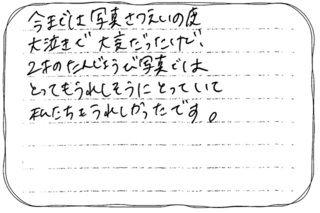 今までは写真さつえいの度
大泣きで大変だったけど、
2才のたんじょうび写真では
とってもうれしそうにとっていて
私たちもうれしかったです。